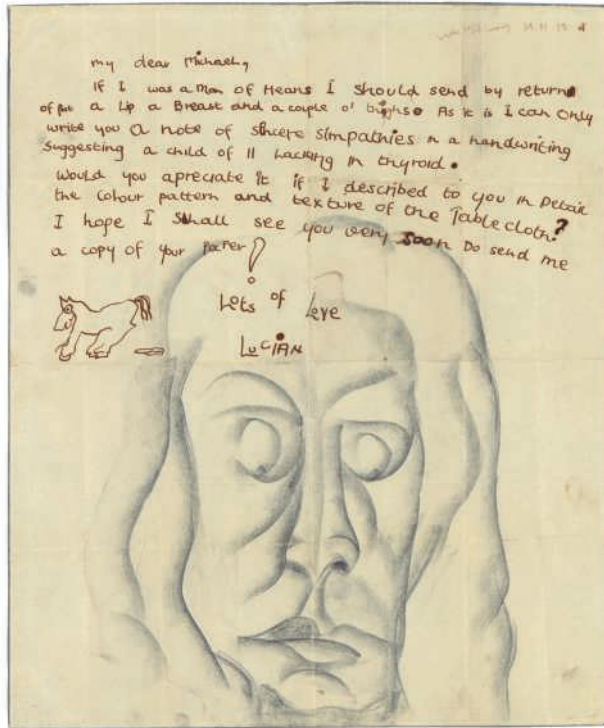 my dear Michael,
If I was a Man of Means I Should send by return
of Post a Lip a Breast and a couple o' thighs. As it is I can Only
write you a note of sincere simpathies in a handwriting
Suggesting a child of 11 Lacking in thyroid.
Would you apreciate it if I described to you in Detail
the Colour pattern and texture of the Tablecloth?
I hope I Shall see you very soon Do send me
a copy of your Paper!
Lots of Love
LuCiAN